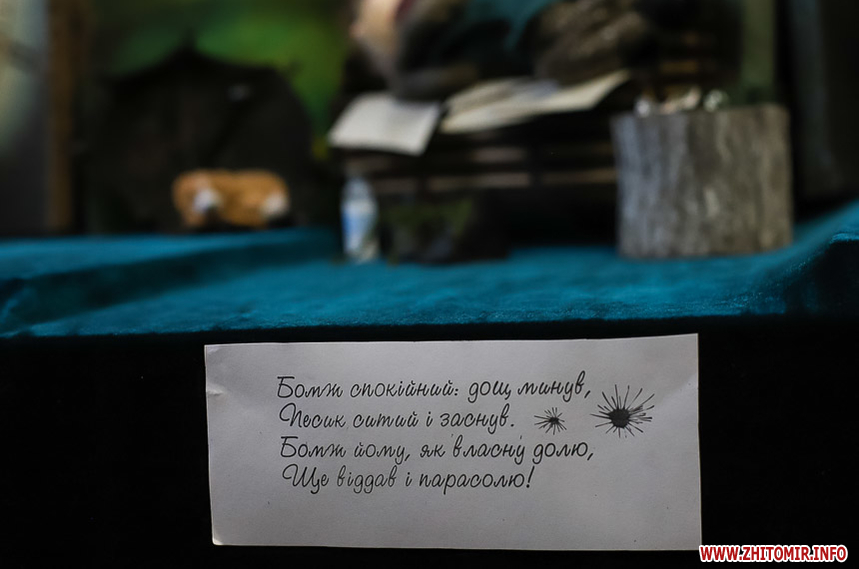 Бомж спокійний: дощ минув,
Песик ситий і заснув.
Бомж йому, як власну долю,
Ще віддав і парасолю!
WWW.ZHITOMIR.INFO